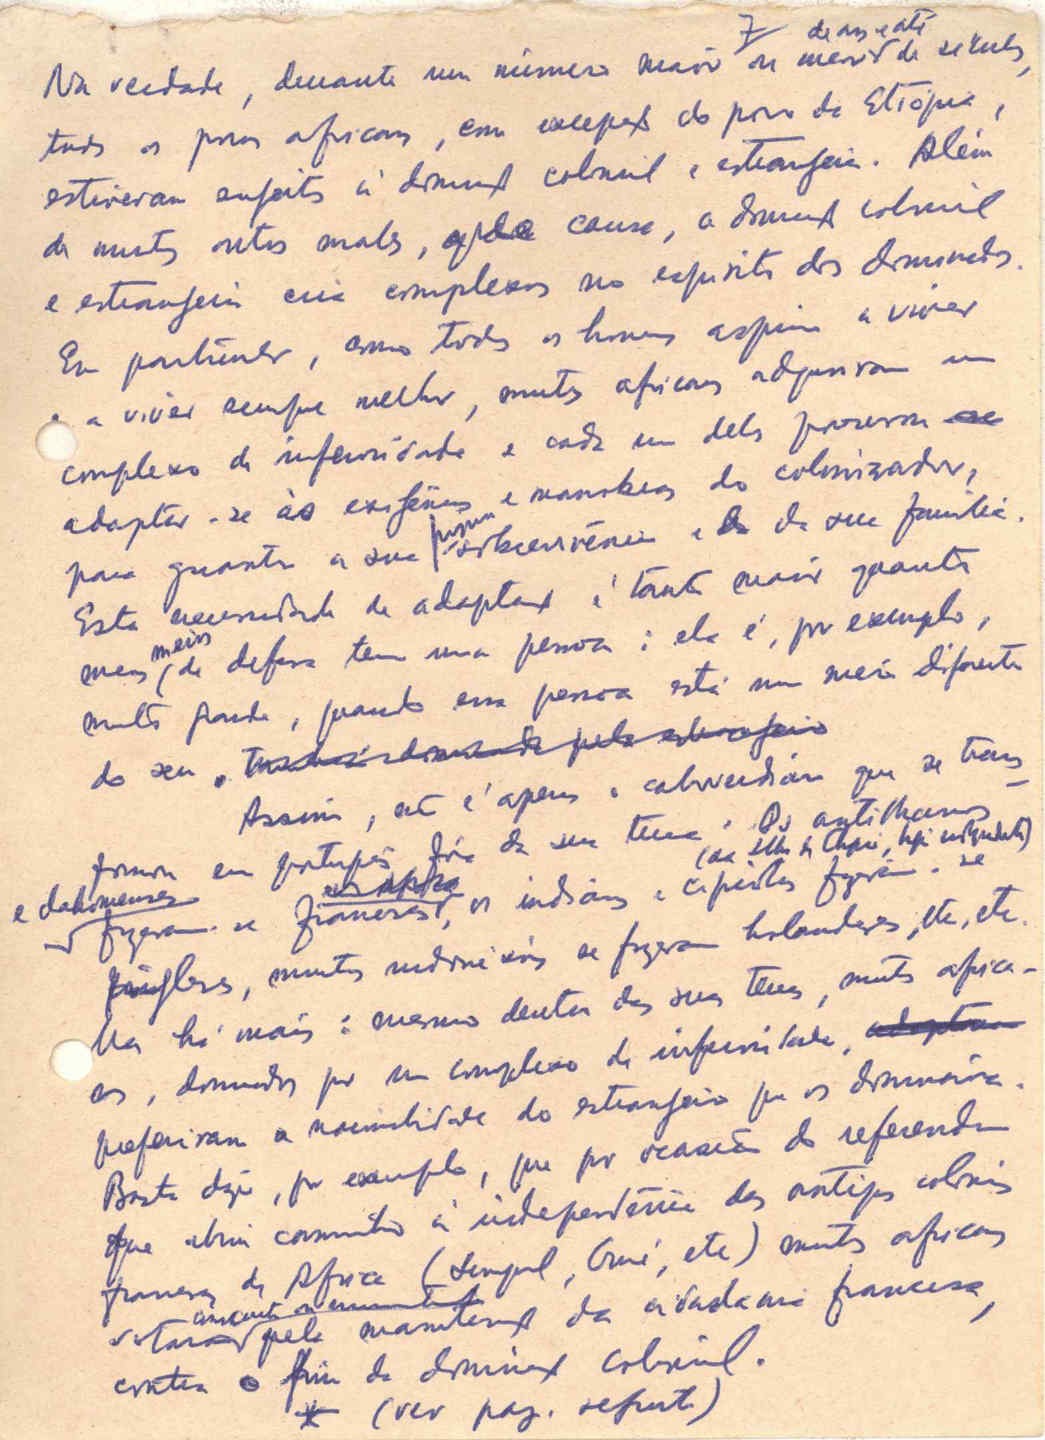 7
de anos e até
Na verdade, durante um número maior ou menor de séculos,
todos os povos africanos, com excepção do povo da Etiópia,
estiveram sujeitos à dominação colonial e estrangeira. Além
de muitos outros males, que causa, a dominação colonial
e estrangeira cria complexos no espírito dos dominados.
Em particular, como todos os homens aspiram a viver
e a viver sempre melhor, muitos africanos adquiriram um
complexo de inferioridade e cada um deles procurou se
adaptar-se às exigências e manobras do colonizador,
para garantir a sua própria sobrevivência e da sua família.
Esta necessidade de adaptação é tanto maior quanto
menos meios de defesa tem uma pessoa: ela é, por exemplo,
muito grande, quando essa pessoa está num meio diferente
do seu.
Assim, não é apenas o caboverdiano que se trans-
formou em português fora da sua terra. Os antilhanos
e dahomeanos fizeram-se franceses, os indianos e cipriotas (da Ilha de Chipre, hoje independente) fizeram-se
ingleses, muitos indonésios se fizeram holandeses, etc, etc.
Mas há mais: mesmo dentro das suas terras, muitos africa-
nos, dominados por um complexo de inferioridade,
preferiram a nacionalidade do estrangeiro que os dominava.
Basta dizer, por exemplo, que por ocasião do referendum
que abriu caminho à independência das antigas colónias
francesas de África (Senegal, Guiné, etc) muitos africanos
votaram pela manutenção da cidadania francesa,
contra o fim da dominação colonial.
* (ver pag. seguinte)